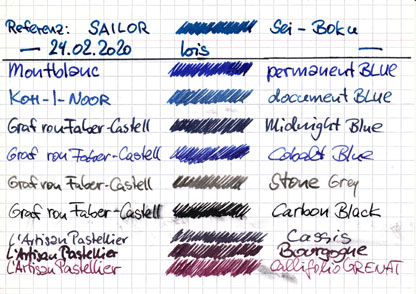 Referenz: SAILOR Sei-Boku
— 24.02.2020 lois —
Montblanc permanent BLUE
KOH-I-NOOR document BLUE
Graf von Faber-Castell Midnight Blue
Graf von Faber-Castell Cobalt Blue
Graf von Faber-Castell Stone Grey
Graf von Faber-Castell Carbon Black
L'Artisan Pastellier Cassis
L'Artisan Pastellier Bourgogne
L'Artisan Pastellier Callifolio GRENAT